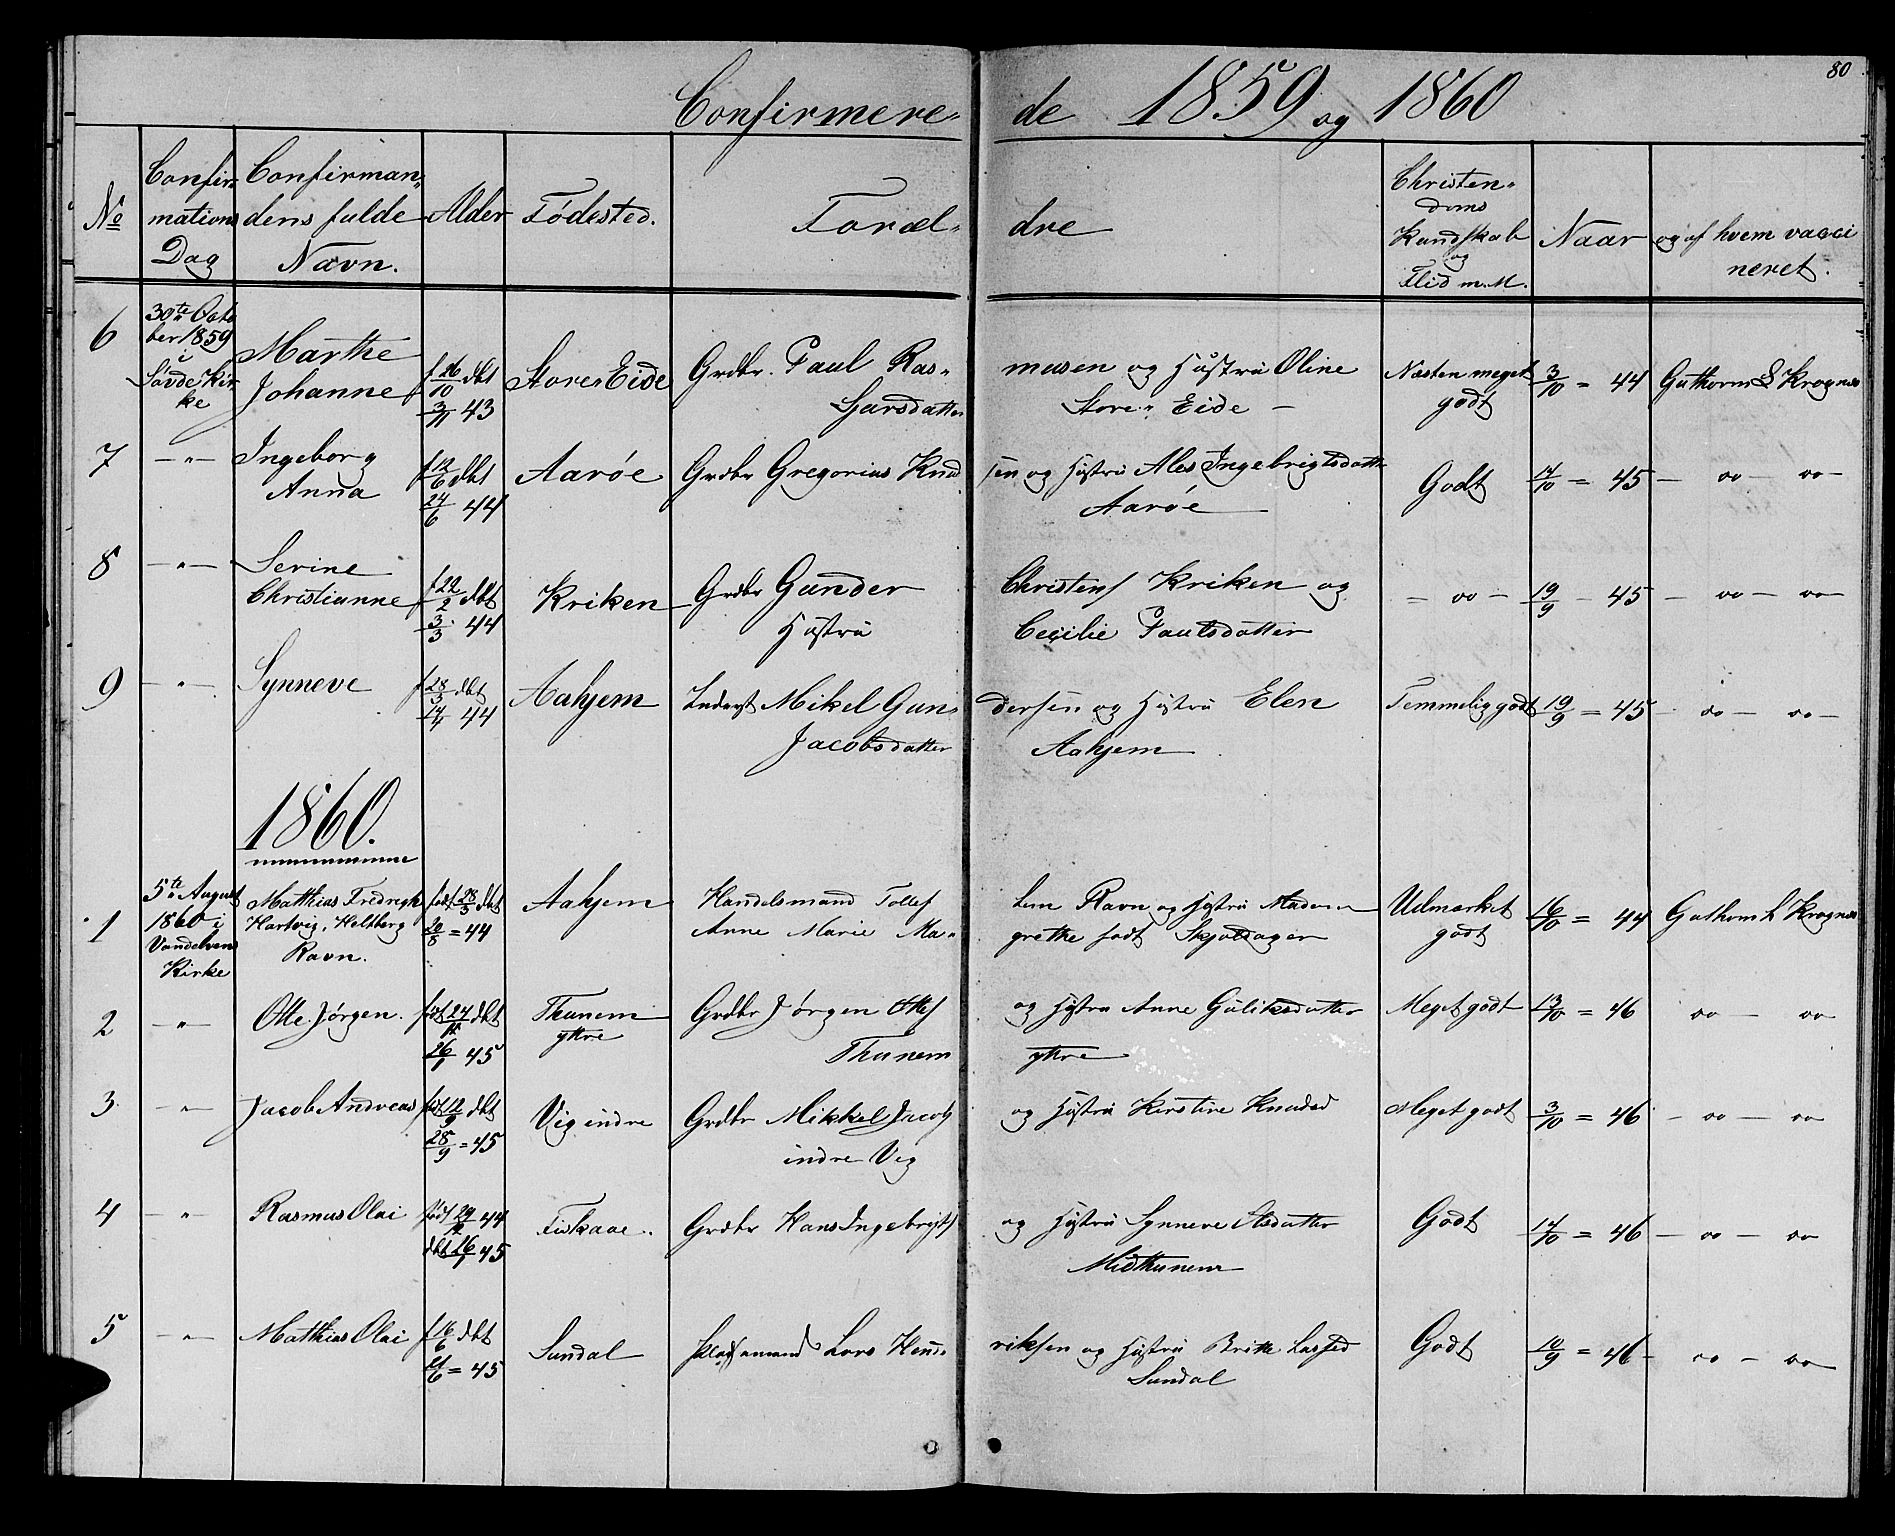 80
Confirmere- de 1859 og 1860
No
Confir-
mations
Dag
Confirman-
dens fulde
Navn.
Alder
Fødested.
Foræl- dre
Christen-
doms
Kundskab
og
Flid m. M.
Naar
og af hvem vacci
neret.
6
30te Octo
ber 1859
i
Søvde Kir
ke
Marthe
Johanne
f 26/10 dbt
3/11 43
Store Eide
Grdbr. Paul Ras- musen og Hustru Oline
Larsdatter Store-Eide —
Næsten meget
godt
3/10 = 44
Guthorm L Krognæs
7 — " —
Ingeborg
Anna
f 12/6 dbt
24/6 44
Aarøe
Grdbr Gregorius Knud sen og Hustru Ales Ingebrigtsdatter
Aarøe
Godt
14/10 = 45 — oo — oo —
8 — " —
Serine
Christianne
f 22/2 dbt
3/3 44
Kriken
Grdbr Gunder Christens Kriken og
Hustru Cecilie Paulsdatter
= oo —
19/9 — 45 — oo — oo —
9 — " —
Synneve
f 28/3 dbt
14/4 44
Aahjem
Inderst Mikel Gun- dersen og Hustru Elen
Jacobsdatter Aahjem
Temmelig godt
19/9 = 45 — oo — oo —
1860.
1
5te August
1860 i
Vandelvens
Kirke
Matthias Fredregh
Hartvig, Heltberg
Ravn.
født 28/3 dbt
20/8 = 44
Aahjem
Handelsmand Tollef Lem Ravn og Hustru Madam
Anne Marie Ma- grethe født Skjoldager
Udmærket
godt
16/10 = 44
Guthorm L Krognæs
2 — " —
Otte Jørgen.
født 24/12 dbt
26/1 45
Thunem
ytre
Grdbr Jørgen Ottes og Hustru Anne Guliksdatter
Thunem ytre
Meget godt
13/10 = 46 oo — oo
3. — " —
Jacob Andreas
født 12/9 dbt
28/9 = 45
Vig indre
Grdbr Mikkel Jacobs og Hustru Kirstine Knudsd
indre Vig
Meget godt
3/10 = 46 — oo — oo
4 — " —
Rasmus Olai
født 29/12 44
dbt 26/1 45
Fiskaae.
Grdbr Hans Ingebrigts og Hustru Synneve Elsdatter
Midthunem
Godt
14/10 = 46 — oo — oo
5 — " —
Mathias Olai
f 16/6 dbt
21/6 = 45
Sundal
Pladsmand Lars Hend- riksen og Hustru Britte Lassed
Sundal
Godt
10/9 = 46 - oo — oo